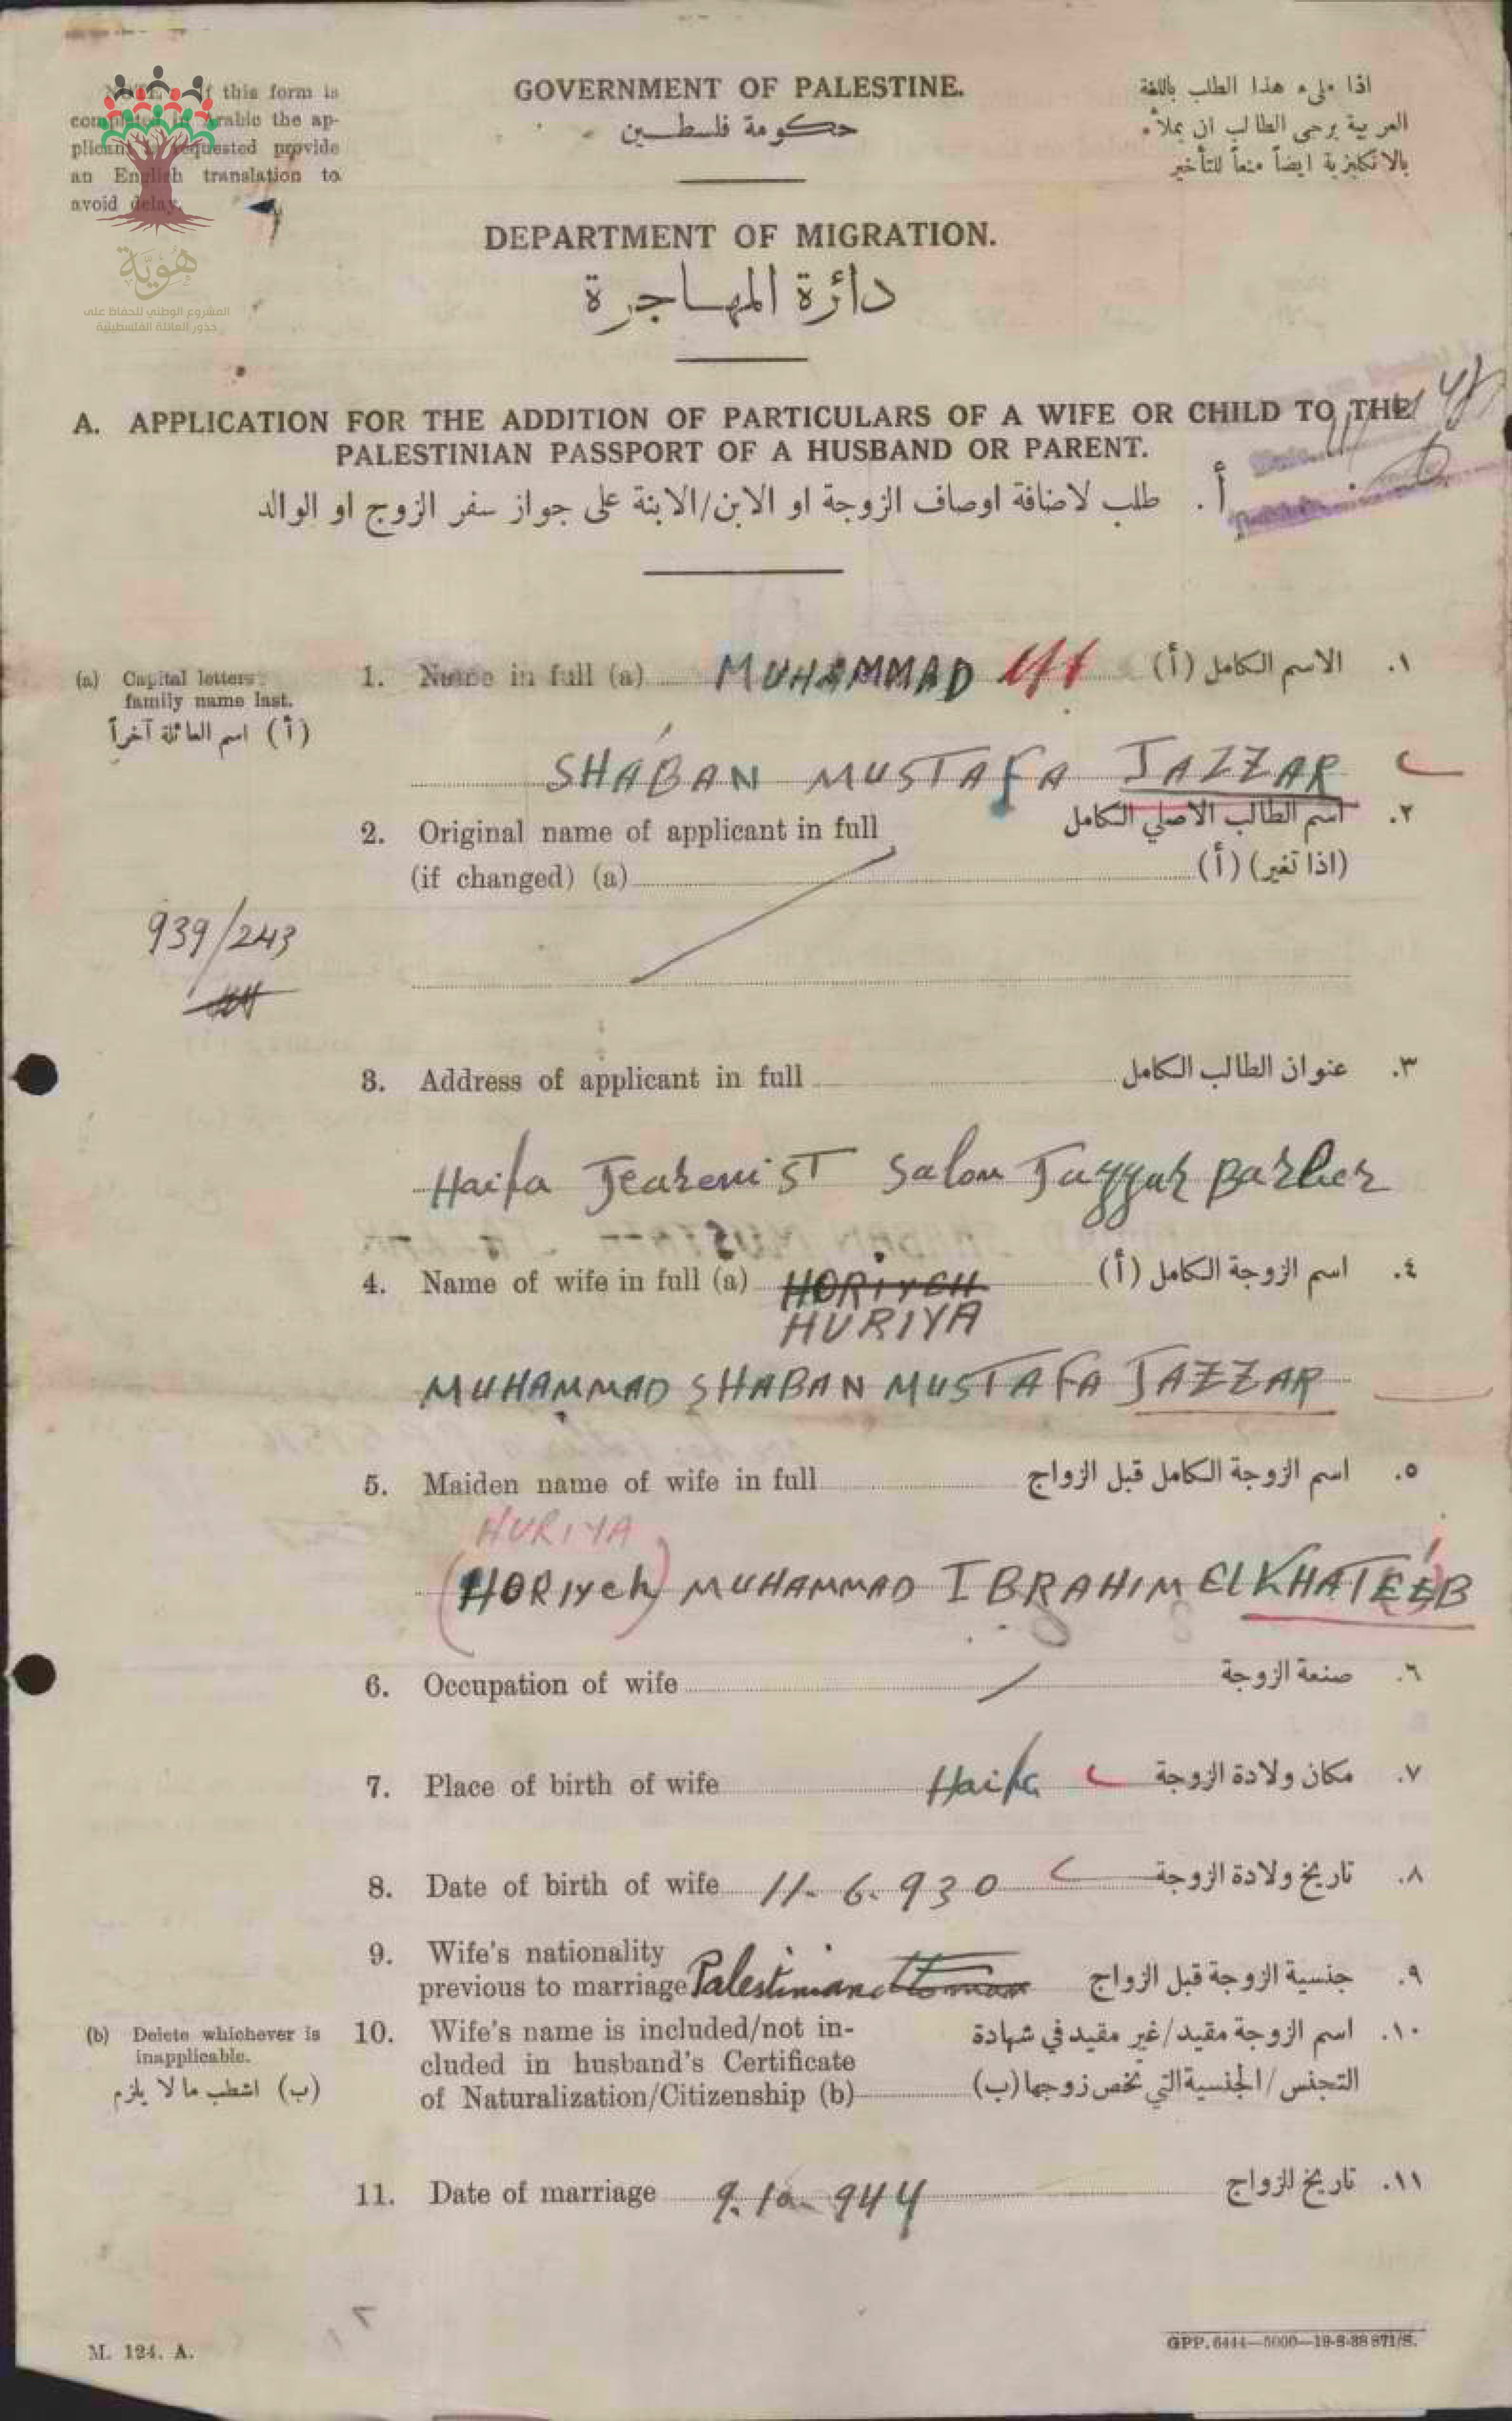 this form is
completed in Arabic the ap-
plicant is requested provide
an English translation to
avoid delay.
هوية
المشروع الوطني للحفاظ على
جذور العائلة الفلسطينية
GOVERNMENT OF PALESTINE.
حكومة فلسطين
اذا ملىء هذا الطلب باللغة
العربية يرجى الطالب ان يملأه
بالانكليزية ايضاً منعاً للتأخير
DEPARTMENT OF MIGRATION.
دائرة المهاجرة
A. APPLICATION FOR THE ADDITION OF PARTICULARS OF A WIFE OR CHILD TO THE
PALESTINIAN PASSPORT OF A HUSBAND OR PARENT.
أ. طلب لاضافة اوصاف الزوجة او الابن/الابنة على جواز سفر الزوج او الوالد
(a) Capital letters
family name last.
(أ) اسم العائلة آخراً
1. Name in full (a) MUHAMMAD الاسم الكامل (أ) ١.
SHABAN MUSTAFA JAZZAR
2. Original name of applicant in full اسم الطالب الاصلي الكامل ٢.
(if changed) (a) (اذا تغير) (أ)
939/243
3. Address of applicant in full عنوان الطالب الكامل ٣.
Haifa ST Salon Jazzar Barber
4. Name of wife in full (a) HORIYEH اسم الزوجة الكامل (أ) ٤.
HURIYA
MUHAMMAD SHABAN MUSTAFA JAZZAR
5. Maiden name of wife in full اسم الزوجة الكامل قبل الزواج ٥.
HURIYA
(HORIYeh) MUHAMMAD IBRAHIM ElKHATEEB
6. Occupation of wife صنعة الزوجة ٦.
7. Place of birth of wife Haifa مكان ولادة الزوجة ٧.
8. Date of birth of wife 11.6.930 تاريخ ولادة الزوجة ٨.
9. Wife's nationality
previous to marriage Palestinian جنسية الزوجة قبل الزواج ٩.
(b) Delete whichever is
inapplicable.
(ب) اشطب ما لا يلزم
10. Wife's name is included/not in- اسم الزوجة مقيد/غير مقيد في شهادة ١٠.
cluded in husband's Certificate
of Naturalization/Citizenship (b) التجنس/الجنسية التي تخص زوجها (ب)
11. Date of marriage 9.10.944 تاريخ الزواج ١١.
M. 124. A.
GPP. 6444—5000—19-8-38 871/S.